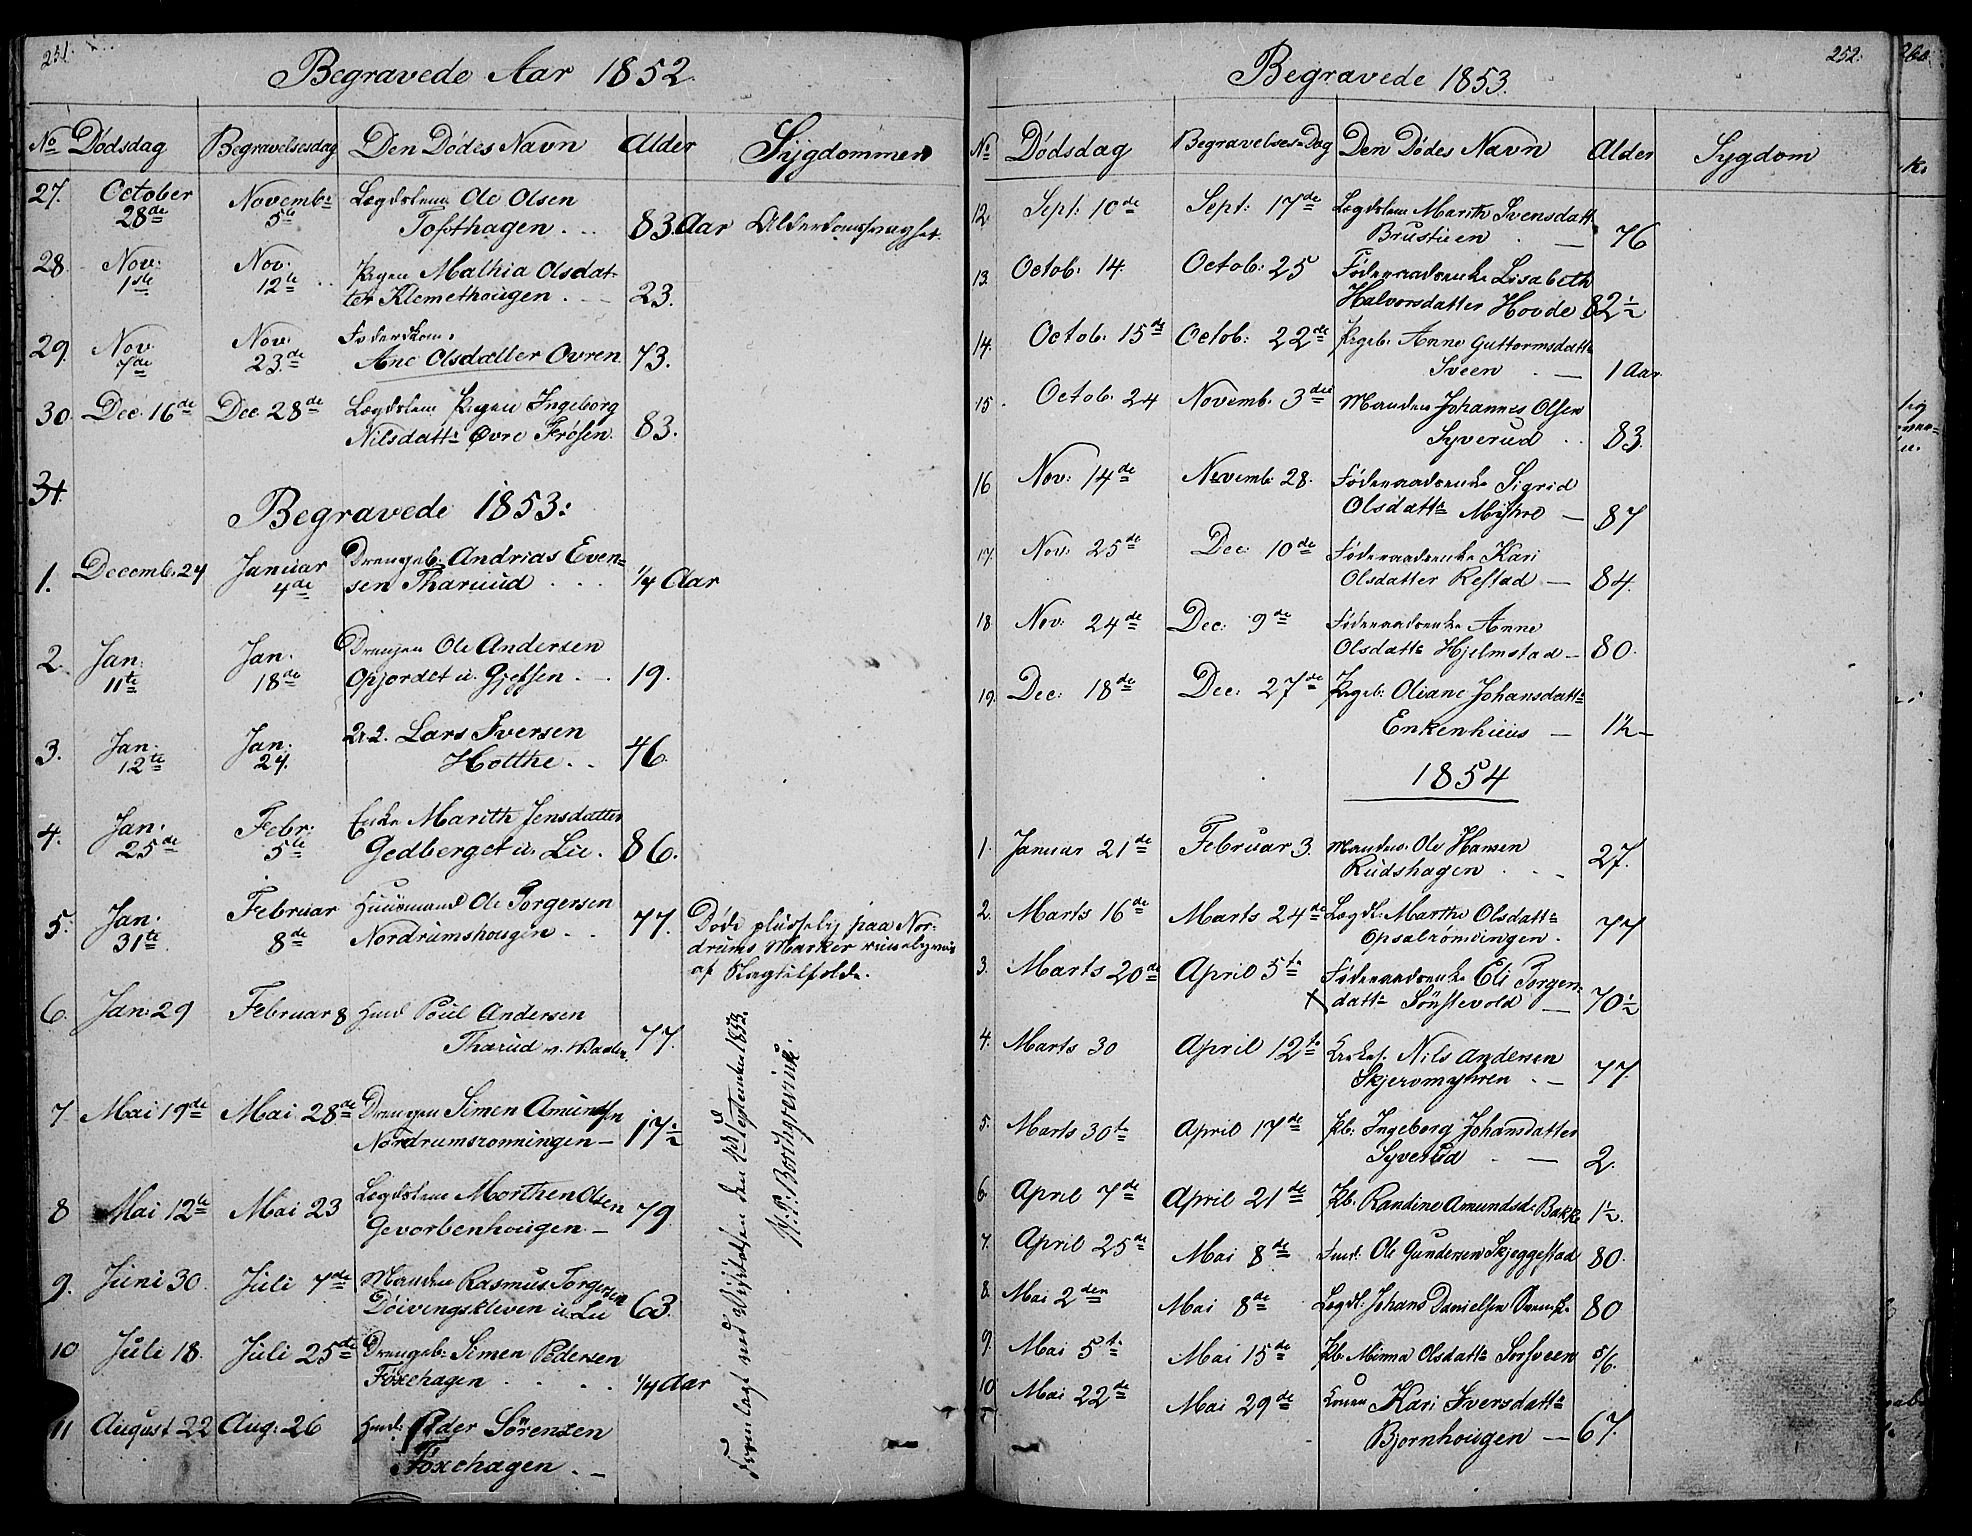 251.
Begravede Aar 1852.
No Dødsdag Begravelsesdag Den Dødes Navn Alder Sÿgdommen
27. October 28de Novembr 5te Lægdslem Ole Olsen
Tofthagen . . . 83. Aar Alderdomssvaghed.
28. Nov: 1ste Nov. 12te Pigen Mathia Olsdat-
ter Klemethougen . — 23.
29. Nov. 7de Nov. 23.de Foderdkone
Ane Olsdatter Ovren. 73.
30. Dec. 16de Dec. 28de Lægdslem Pigen Ingeborg
Nilsdattr Øvre Frøsen. 83.
31.
Begravede 1853:
1. Decemb: 24 Januar 4de Drengeb: Andrias Even-
sen Tharuud . . . 1/4 Aar
2. Jan: 11te Jan. 18de Drengen Ole Andersen
Opjordet u. Gjefsen . — 19.
3. Jan. 12te Jan. 24. Lars Iversen
Hotthe . . 46.
4. Jan: 25de Febr: 5te Enke Marith Jensdatter
Gedberget u. Lie. 86.
5. Jan. 31te Februar 8de Huusmand Ole Torgersen
Nordrumshougen . . 77. Døde pludselig paa Nor-
drums Marker
af Slagtilfælde.
6. Jan: 29 Februar 8 Huusd Poul Andersen
Tharud 77.
7. Mai 19de Mai 28de Drengen Simen Amundsen
Nordrumsronningen — 17 1/2
8 Mai 12te Mai 23 Lægdslem Morthen Olsen
Gevorbenhougen — 79
9. Juni 30. Juli 7de Manden Rasmus Torgersen
Døivingskleven u. Lie 63.
10 Juli 18. Juli 25de Drengeb: Simen Pedersen
Foxehagen . . . . 1/4 Aar
11 August 22 Aug: 26 Huusd: Peder Sörensen
Foxehagen . —
Fremlagt ved Visitatsen den September 1853.
Borchgrevink.
252.
Begravede 1853.
No Dødsdag Begravelses-Dag Den Dødes Navn Alder Sygdom
12. Sept: 10de Sept: 17de Lægdslem Marith Svensdatt
Brustuen . — 76
13. Octob: 14. Octob: 25 Føderaadsenke Lisabeth
Halvorsdatter Hovde 82 1/2
14. Octob. 15de Octob: 22de Pigeb. Anne Guttormsdattr
Sveen . — 1 Aar.
15. Octob. 24 Novemb: 3die Manden Johannes Olsen
Syverud . . 83.
16 Nov: 14de Novemb: 28. Føderaadsenke Sigrid
Olsdattr Mÿhre — 87
17. Nov: 25de Dec: 10de Føderaadsenke Kari
Olsdatter Refstad — 84.
18. Nov: 24de Dec: 9de Føderaadsenke Anne
Olsdattr Hjelmstad — 80.
19. Dec: 18de Dec: 27de Pigeb: Oliane Johansdattr
Enkenhuus — 1/2 —
1854
1. Januar 21de Februar 3. Manden Ole Hansen
Rudshagen . . 27.
2. Marts 16de Marts 24de Lægdl: Marthe Olsdattr
Opsalrönningen . 77
3. Marts 20de April 5te Føderaadsenke Eli Torgers-
× dattr Sønstevold — 70 1/2
4. Marts 30 April 12te Nils Andersen
Skjeromyhren . — 77.
5. Marts 30te April 17de Pb: Ingeborg Johansdatter
Syverud . — 2.
6. April 7de April 21de Pb: Randine Amundsd. Bakke 1 1/2.
7. April 25de Mai 8de Ole Gundersen Skjeggestad 80.
8. Mai 2den Mai 8de Lægdl: Johans Danielsen Svensk. 80
9. Mai 5te Mai 15de Pb. Minna Olsdattr Sorsveen 5/6.
10 Mai 22de Mai 29de Konen Kari Iversdattr
Bjornhougen — 67.